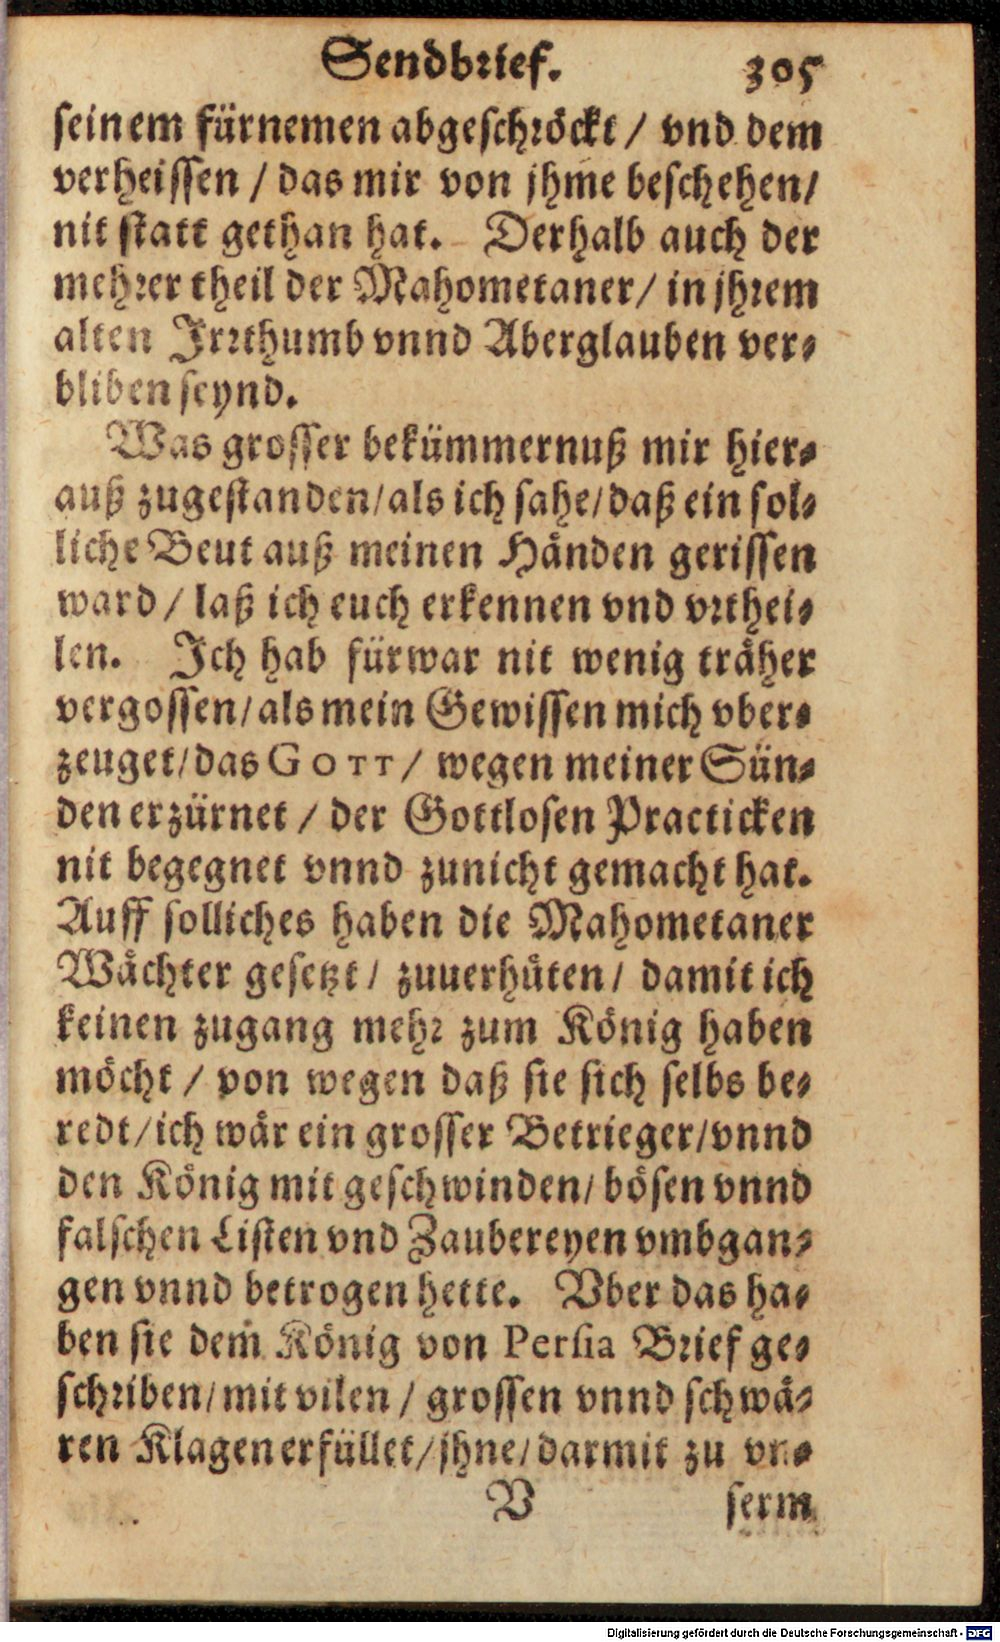 Sendbrief. 305
seinem fürnemen abgeschröckt / vnd dem
verheissen / das mir von jhme beschehen/
nit statt gethan hat. Derhalb auch der
mehrer theil der Mahometaner/ in jhrem
alten Irrthumb vnnd Aberglauben ver-
bliben seynd.
Was grosser bekümmernuß mir hier-
auß zugestanden/als ich sahe/daß ein sol-
liche Beut auß meinen Händen gerissen
ward / laß ich euch erkennen vnd vrthei-
len. Ich hab fürwar nit wenig träher
vergossen/als mein Gewissen mich vber-
zeuget/das GOTT/ wegen meiner Sün-
den erzürnet / der Gottlosen Practicken
nit begegnet vnnd zunicht gemacht hat.
Auff solliches haben die Mahometaner
Wächter gesetzt/ zuuerhüten/ damit ich
keinen zugang mehr zum König haben
möcht / von wegen daß sie sich selbs be-
redt/ich wär ein grosser Betrieger/vnnd
den König mit geschwinden/ bösen vnnd
falschen Listen vnd Zaubereyen vmbgan-
gen vnnd betrogen hette. Vber das ha-
ben sie dem König von Persia Brief ge-
schriben/mit vilen / grossen vnnd schwä-
ren Klagen erfüllet/jhne/darmit zu vn-
V serm
Digitalisierung gefördert durch die Deutsche Forschungsgemeinschaft - DFG